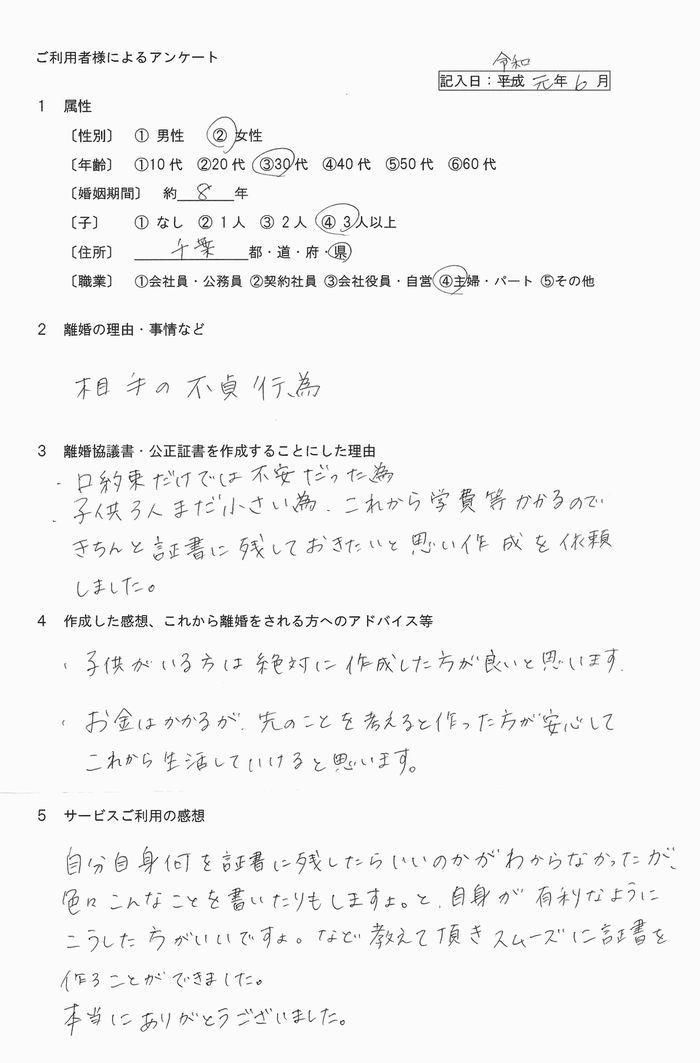 ご利用者様によるアンケート
令和
記入日：平成 元年 6 月
1 属性
〔性別〕 ① 男性 ② 女性
〔年齢〕 ①10代 ②20代 ③30代 ④40代 ⑤50代 ⑥60代
〔婚姻期間〕 約 8 年
〔子〕 ① なし ② 1人 ③ 2人 ④ 3人以上
〔住所〕 千葉 都・道・府・県
〔職業〕 ①会社員・公務員 ②契約社員 ③会社役員・自営 ④主婦・パート ⑤その他
2 離婚の理由・事情など
相手の不貞行為
3 離婚協議書・公正証書を作成することにした理由
・口約束だけでは不安だった為
・子供3人まだ小さい為、これから学費等かかるので
きちんと証書に残しておきたいと思い作成を依頼
しました。
4 作成した感想、これから離婚をされる方へのアドバイス等
・子供がいる方は絶対に作成した方が良いと思います。
・お金はかかるが、先のことを考えると作った方が安心して
これから生活していけると思います。
5 サービスご利用の感想
自分自身何を証書に残したらいいのかがわからなかったが、
色々こんなことを書いたりもしますよ。と、自身が有利なように
こうした方がいいですよ。など教えて頂きスムーズに証書を
作ることができました。
本当にありがとうございました。